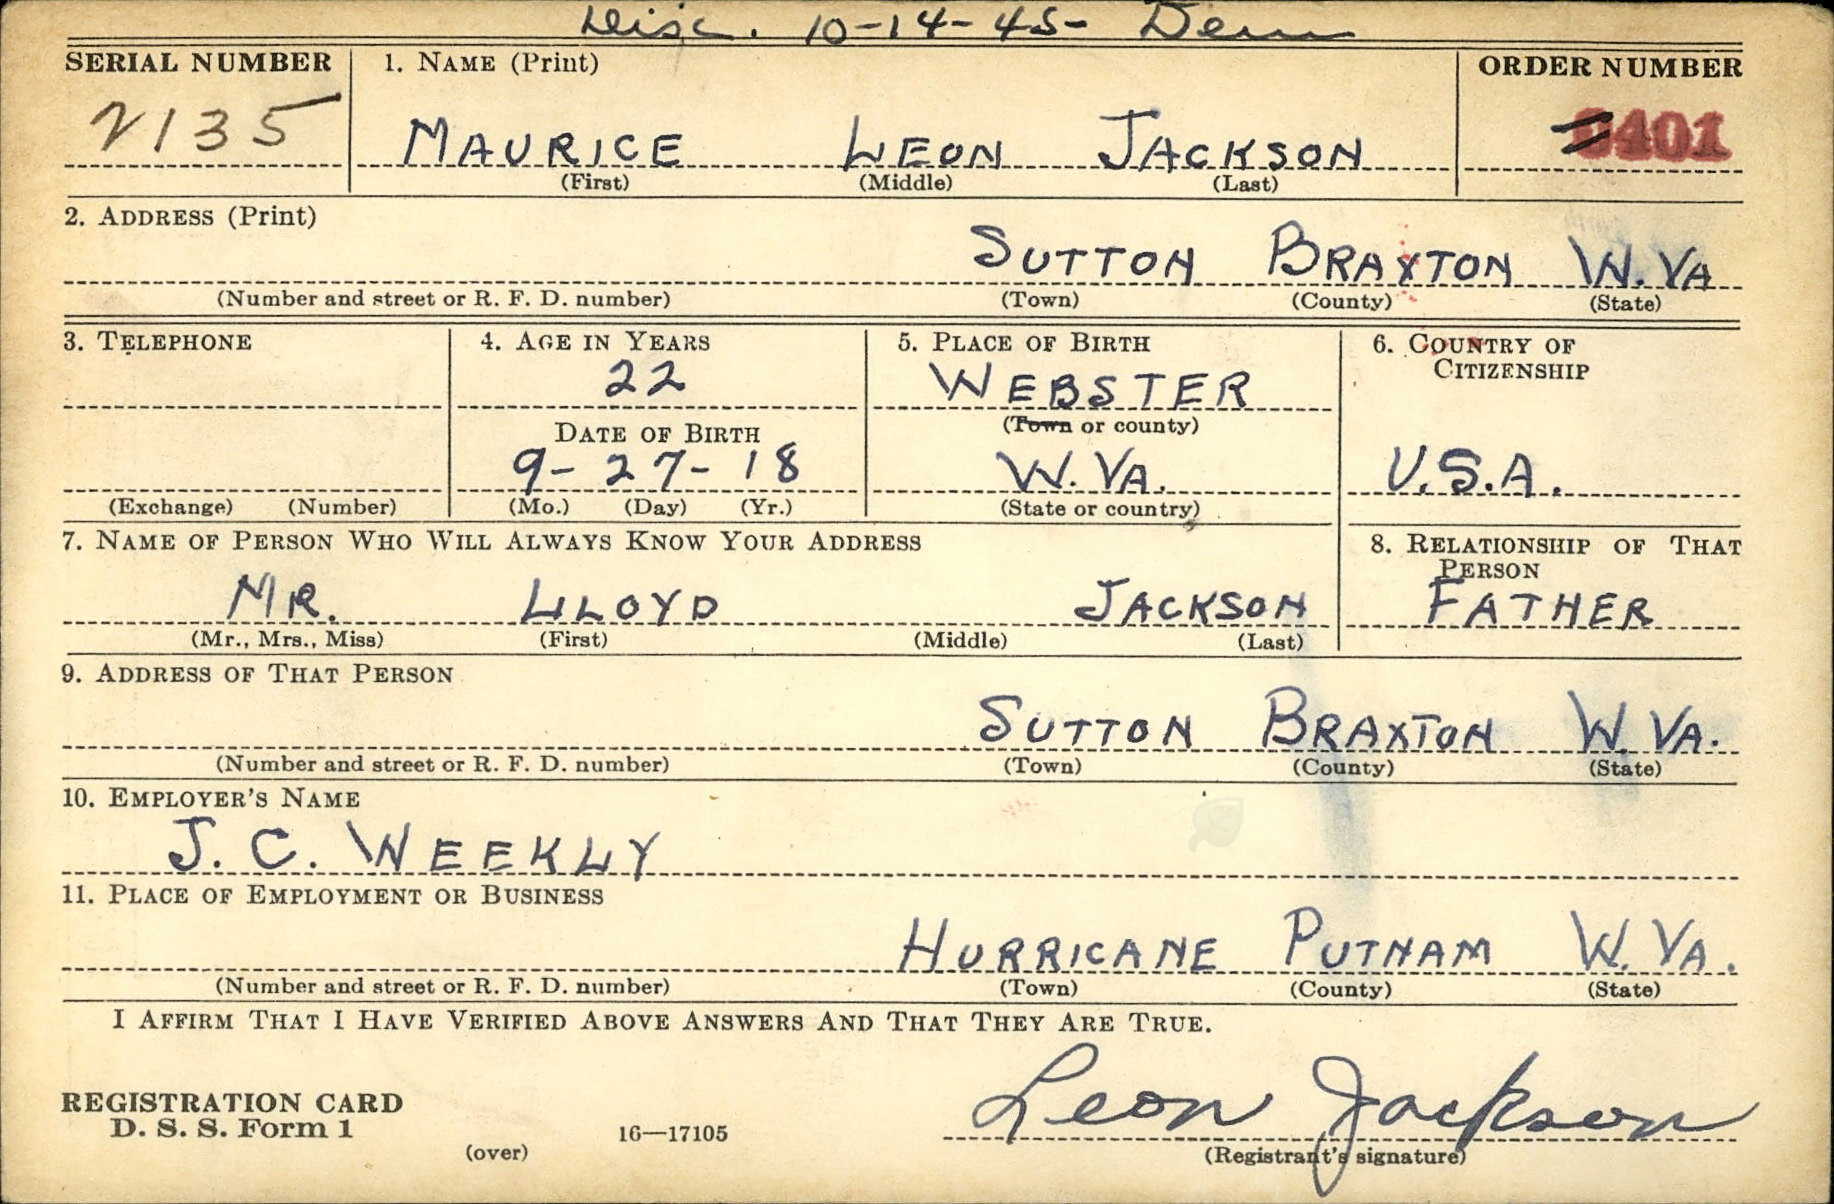 Disc. 10-14-45- Dem
SERIAL NUMBER
1. NAME (Print)
ORDER NUMBER
2135
MAURICE LEON JACKSON
401
(First) (Middle) (Last)
2. ADDRESS (Print)
SUTTON BRAXTON W. VA
(Number and street or R. F. D. number) (Town) (County) (State)
3. TELEPHONE
4. AGE IN YEARS
5. PLACE OF BIRTH
6. COUNTRY OF
CITIZENSHIP
22
WEBSTER
(Town or county)
DATE OF BIRTH
9-27-18
W. VA.
U.S.A.
(Exchange) (Number)
(Mo.) (Day) (Yr.)
(State or country)
7. NAME OF PERSON WHO WILL ALWAYS KNOW YOUR ADDRESS
8. RELATIONSHIP OF THAT
PERSON
MR. LLOYD JACKSON
FATHER
(Mr., Mrs., Miss) (First) (Middle) (Last)
9. ADDRESS OF THAT PERSON
SUTTON BRAXTON W. VA.
(Number and street or R. F. D. number) (Town) (County) (State)
10. EMPLOYER'S NAME
J. C. WEEKLY
11. PLACE OF EMPLOYMENT OR BUSINESS
HURRICANE PUTNAM W. VA.
(Number and street or R. F. D. number) (Town) (County) (State)
I AFFIRM THAT I HAVE VERIFIED ABOVE ANSWERS AND THAT THEY ARE TRUE.
Leon Jackson
REGISTRATION CARD
D. S. S. Form 1
(over)
16—17105
(Registrant's signature)